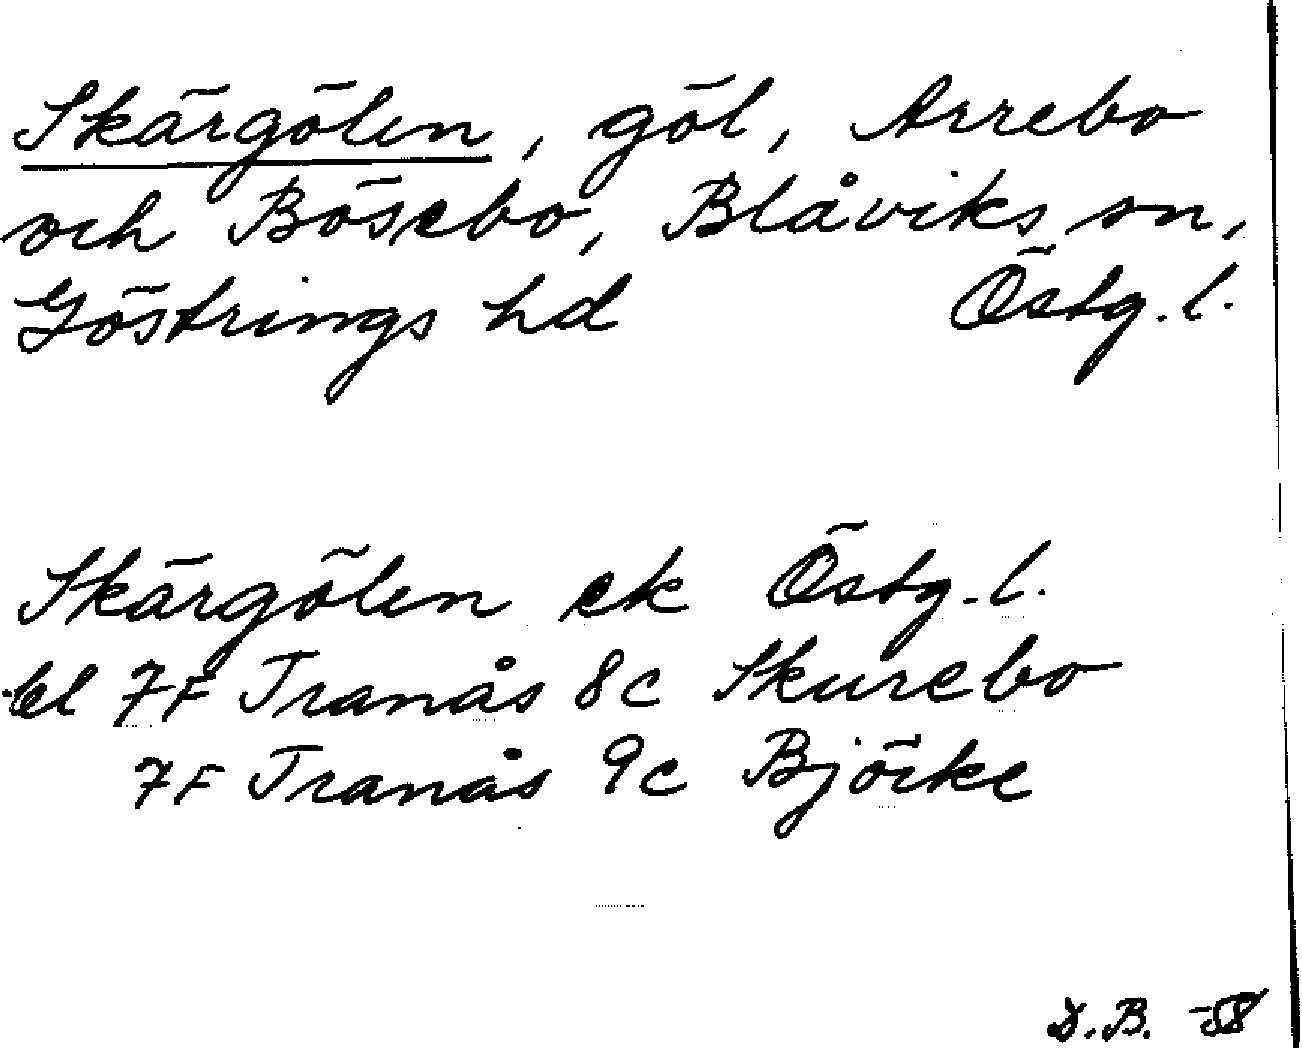 Skärgölen, göl, Arrebo
och Bösebo, Blåviks sn,
Göstrings hd Östg. l.
Skärgölen ek Östg. l.
bl 7F Tranås 8c Skurebo
7F Tranås 9c Björke
D.B. -58